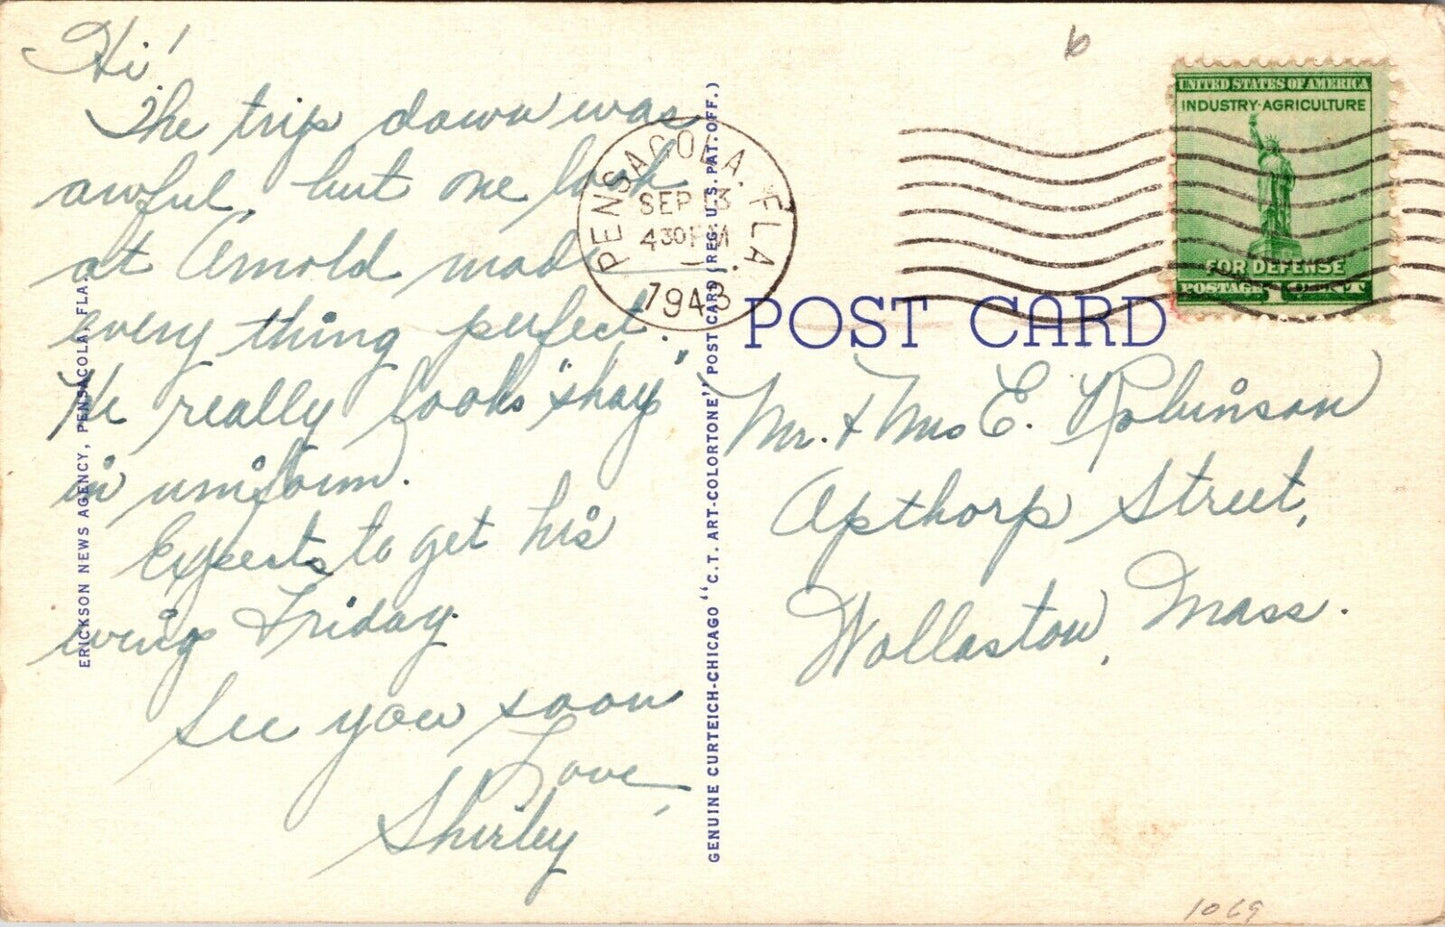 Hi!
The trip down was
awful, but one look
at Arnold made
every thing perfect.
He really looks "shay"
in uniform.
Expects to get his
wings Friday.
See you soon
Love,
Shirley
ERICKSON NEWS AGENCY, PENSACOLA, FLA.
GENUINE CURTEICH-CHICAGO "C.T. ART-COLORTONE" POST CARD (REG. U.S. PAT. OFF.)
PENSACOLA, FLA.
SEP 13
4 30 PM
1943
6
UNITED STATES OF AMERICA
INDUSTRY·AGRICULTURE
FOR DEFENSE
POSTAGE 1
POST CARD
Mr. + Mrs E. Robinson
Apthorp Street,
Wollaston, Mass.
1069